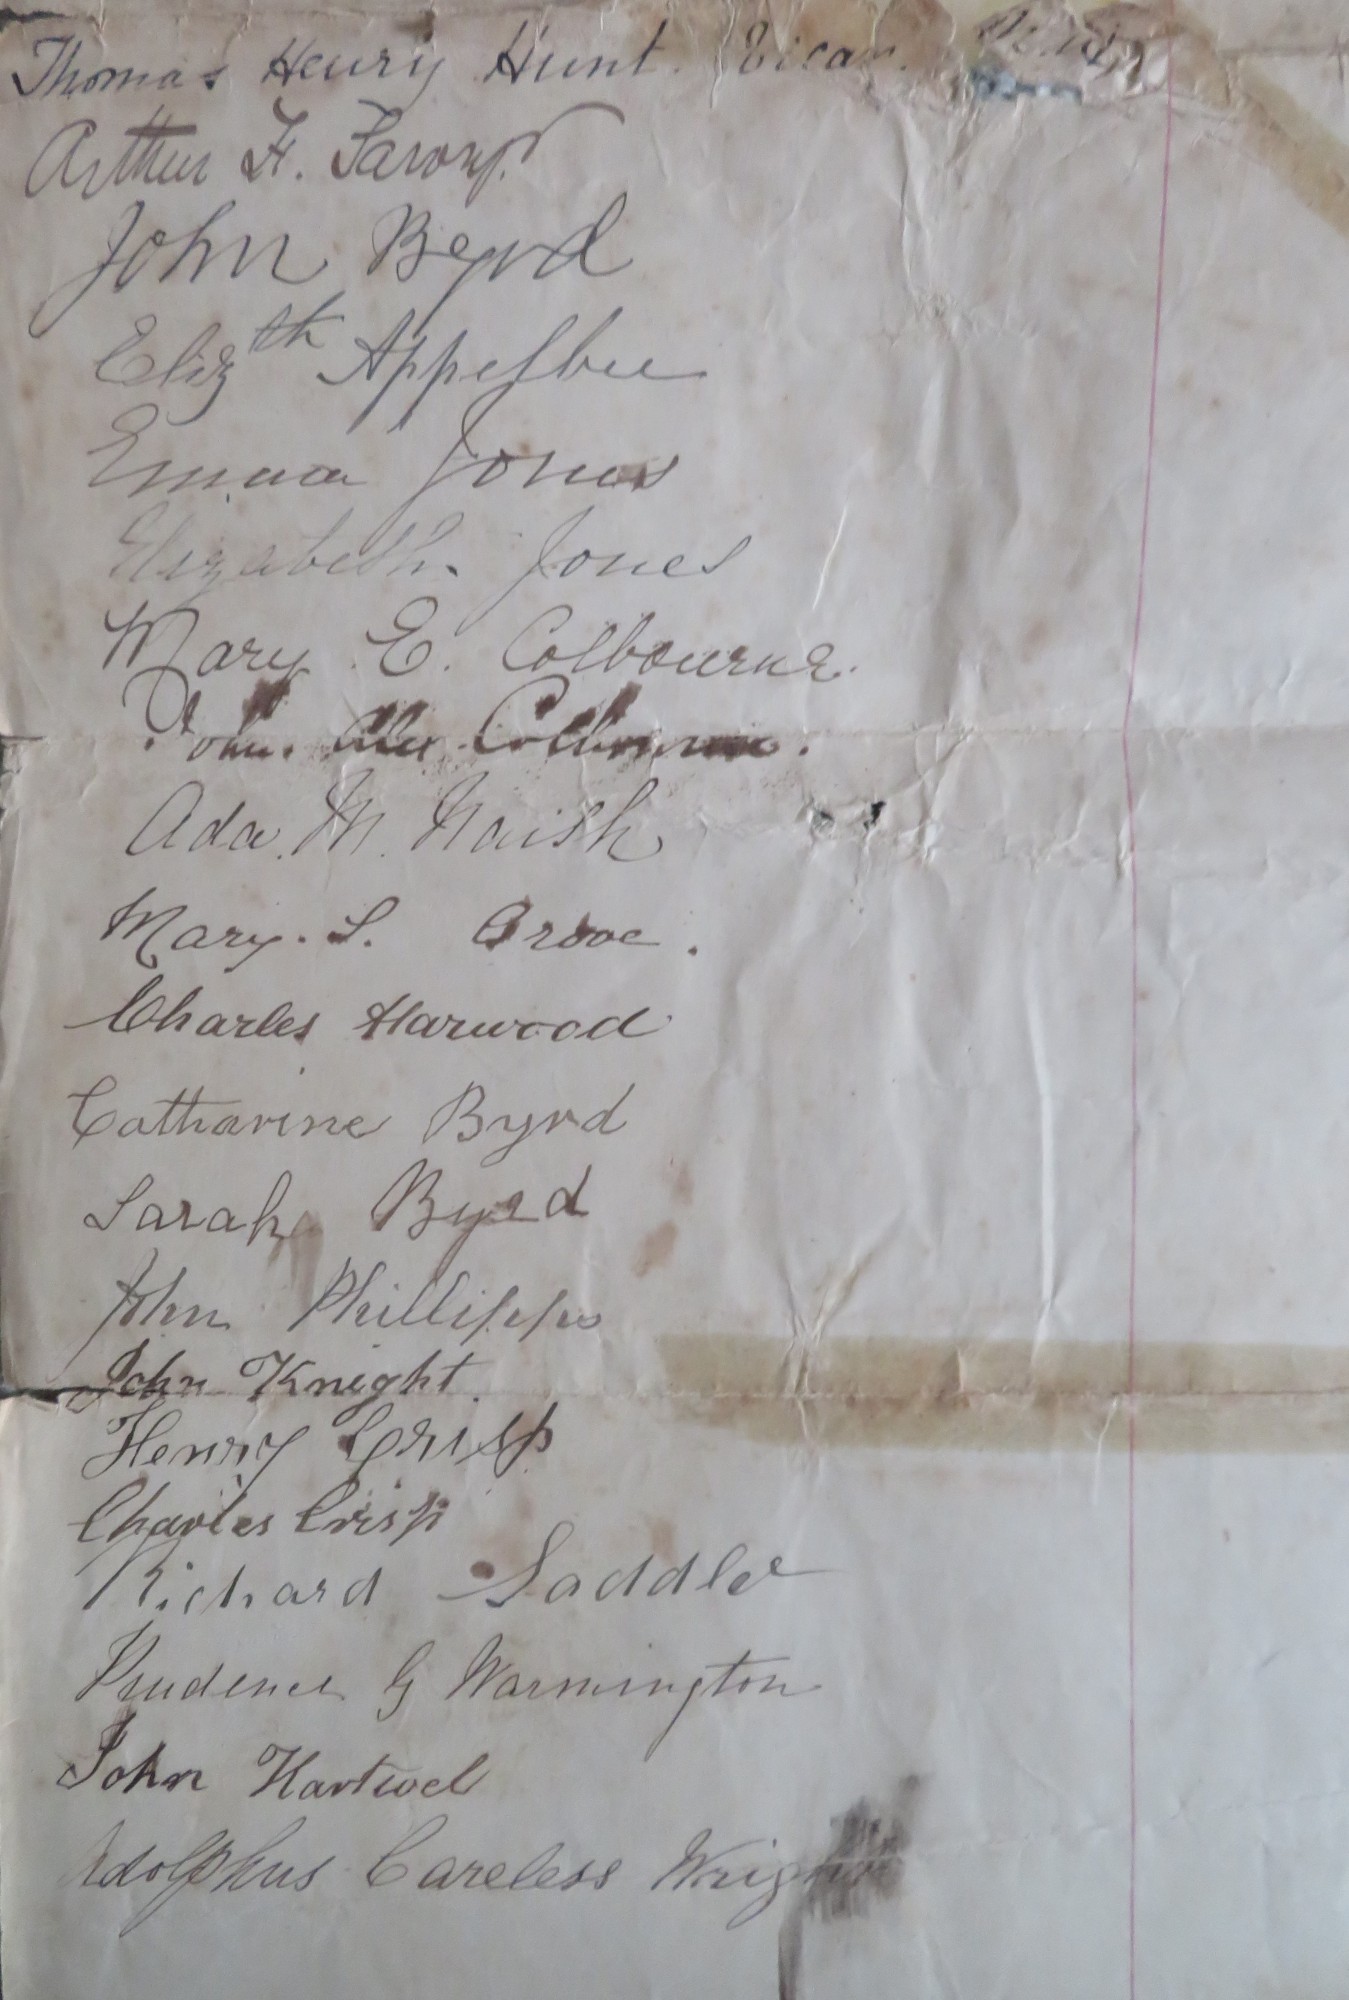 Thomas Henry Hunt. Vicar.
Arthur F.
John Byrd
Eliz th Appelbee
Emma Jones
Elizabeth. Jones
Mary E. Colbourne.
John. Alex Colbourne.
Ada. M. Naish
Mary. S. Grove.
Charles Harwood
Catharine Byrd
Sarah Byrd
John Phillipps
John Knight.
Henry Crisp
Charles Crisp
Richard Saddler
Prudence G Warmington
John Hartwel
Adolphus Careless Wright